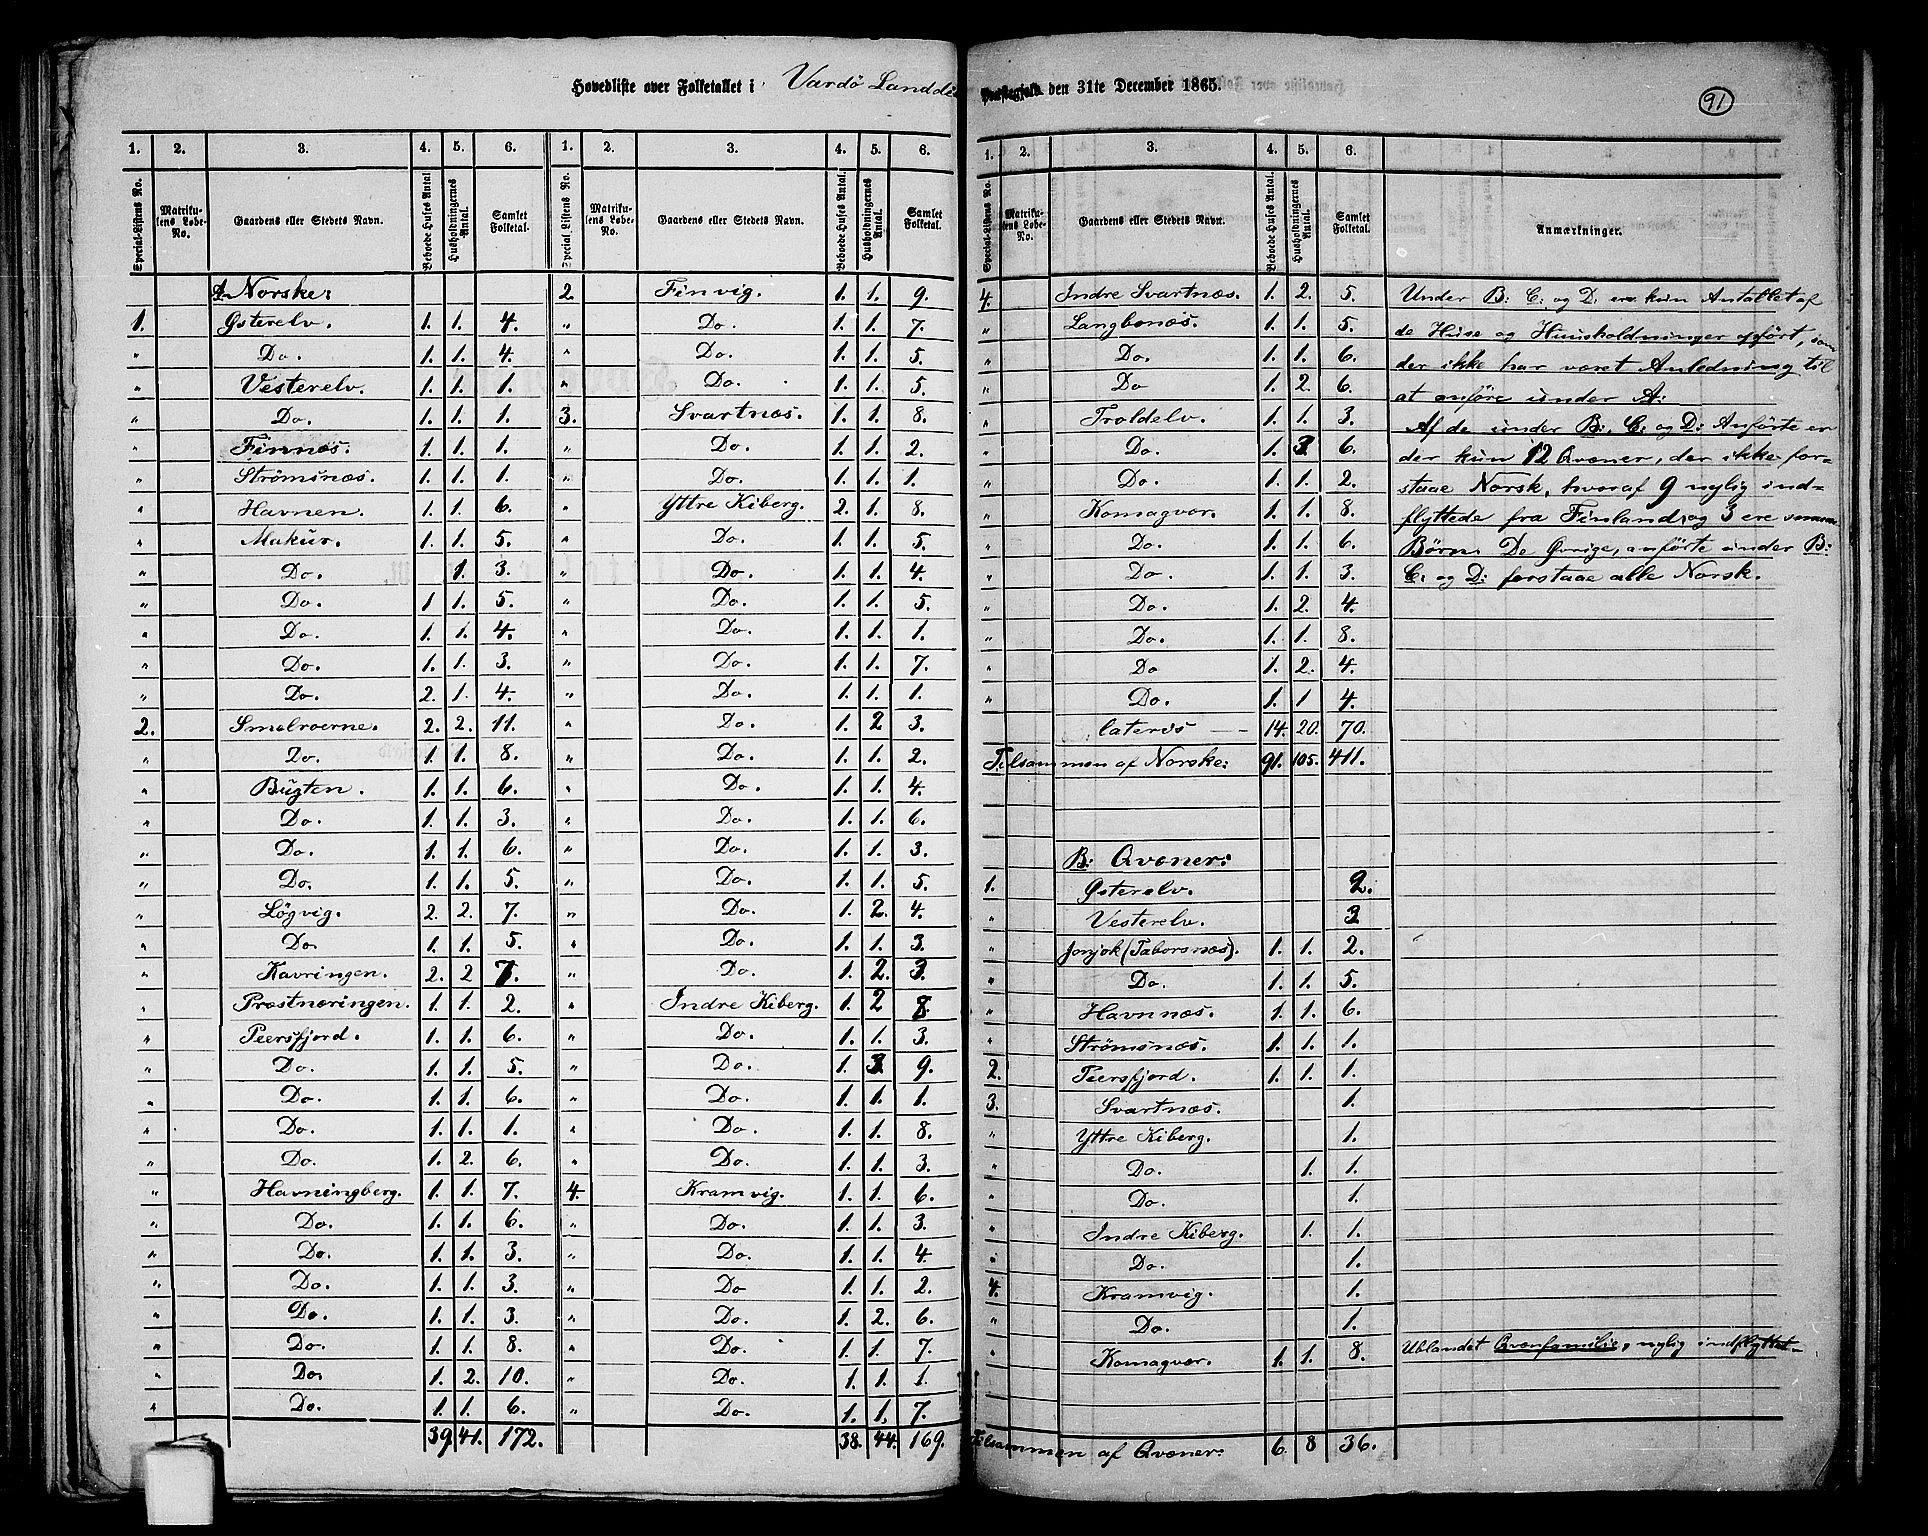 Hovedliste over Folketallet i Vardö Landd
den 31te December 1865.
91
1. 2. 3. 4. 5. 6. 1. 2. 3. 4. 5. 6.
Special-Listens No. Matrikulens Løbe-No. Gaardens eller Stedets Navn. Beboede Huses Antal Husholdningernes Antal. Samlet Folketal. Special Listens No. Matrikulens Løbe-No. Gaardens eller Stedets Navn. Beboede Huses Antal. Husholdningernes Antal. Samlet Folketal.
A. Norske: 2. Finvig. 1. 1. 9.
1. Østerelv. 1. 1. 4. " Do. 1. 1. 7.
" Do. 1. 1. 4. " Do. 1. 1. 5.
" Vesterelv. 1. 1. 1. " Do. 1. 1. 5.
" Do. 1. 1. 1. 3. Svartnæs. 1. 1. 8.
" Finnæs. 1. 1. 1. " Do. 1. 1. 2.
" Strömsnæs. 1. 1. 1. " Do. 1. 1. 1.
" Havnen. 1. 1. 6. " Yttre Kiberg. 2. 1. 8.
" Makur. 1. 1. 5. " Do. 1. 1. 5.
" Do. 1. 3. " Do. 1. 1. 4.
" Do. 1 1. 5. " Do. 1. 1. 5.
" Do. 1. 1. 4. " Do. 1. 1. 1.
" Do. 1. 1. 3. " Do. 1. 1. 7.
" Do. 2. 1. 4. " Do. 1. 1. 1.
2. Smelroerne. 2. 2. 11. " Do. 1. 2 3.
" Do. 1. 1. 8. " Do. 1. 1. 2.
" Bugten. 1. 1. 6. " Do. 1. 1. 4.
" Do. 1. 1. 3. " Do. 1. 1. 6.
" Do. 1. 1. 6. " Do. 1. 1. 3.
" Do. 1. 1. 5. " Do. 1. 1. 5.
" Lögvig. 2. 2. 7. " Do. 1. 2. 4.
" Do. 1. 1. 5. " Do. 1. 1. 3.
" Kavringen. 2. 2 7. " Do. 1. 2. 3.
" Præstnæringen. 1. 1. 2. " Indre Kiberg. 1. 2 8.
" Peersfjord. 1. 1. 6. " Do. 1. 1. 3.
" Do. 1. 1. 5. " Do. 1. 3. 9.
" Do. 1. 1. 6. " Do. 1. 1. 1.
" Do. 1. 1. 1. " Do. 1. 1. 8.
" Do. 1. 2. 6. " Do. 1. 1. 3.
" Havningberg. 1. 1. 7. 4. Kramvig. 1. 1. 6.
" Do. 1. 1. 6. " Do. 1. 1. 3.
" Do. 1. 1. 3. " Do. 1. 1. 4.
" Do. 1. 1. 3. " Do 1. 1. 2.
" Do. 1. 1. 3. " Do. 1. 2. 6.
" Do. 1. 1. 8. " Do. 1. 1. 7.
" Do. 1. 2. 10. " Do. 1. 1. 1.
" Do. 1. 1. 6. " Do. 1. 1. 7.
39. 41. 172. 38. 44. 169.
1. 2. 3. 4. 5. 6.
Special-Listens No. Matrikulens Løbe-No. Gaardens eller Stedets Navn. Beboede Huses Antal. Husholdningernes Antal. Samlet Folketal. Anmærkninger.
4. Indre Svartnæs. 1. 2. 5. Under B: C: og D. ere kun Antallet af
" Langbonæs. 1. 1. 5. de Huse og Huusholdninger opført, som
" Do. 1. 1. 6. der ikke har været Anledning til
" Do 1. 2. 6. at anføre under A:
" Troldelv. 1. 1. 3. Af de under B: C: og D: Anførte er
" Do. 1. 3. 6. der kun 12 Qvæner, der ikke for-
" Do. 1. 1. 2. staae Norsk, hvoraf 9 nylig ind-
" Komagvær. 1. 1. 8. flyttede fra Finland, og 3 ere
" Do. 1. 1. 6. Børn. De Øvrige, anførte under B:
" Do. 1. 1. 3. C. og D: forstaae alle Norsk.
" Do. 1. 2. 4.
" Do. 1. 1. 8.
" Do 1. 2. 4.
" Do. 1. 1 4.
lateris 14. 20. 70.
Tilsammen af Norske: 91. 105. 411.
B: Qvæner:
1. Østerelv. 2.
" Vesterelv. 3
" Jonjok (Taborsnæs). 1. 1. 2.
" Do. 1. 1. 5.
" Havnnæs. 1. 1. 6.
" Strömsnæs. 1. 1. 1.
2. Peersfjord. 1. 1. 1.
3. Svartnæs. 1.
" Yttre Kiberg. 1.
" Do. 1. 1.
" Do. 1.
" Indre Kiberg. 1. 1.
" Do. 1.
4. Kramvig. 1.
" Do. 1.
" Komagvær. 1. 1. 8. Ublandet Qvænfamilie, nylig indflyttet
Tilsammen af Qvæner: 6. 8 36.